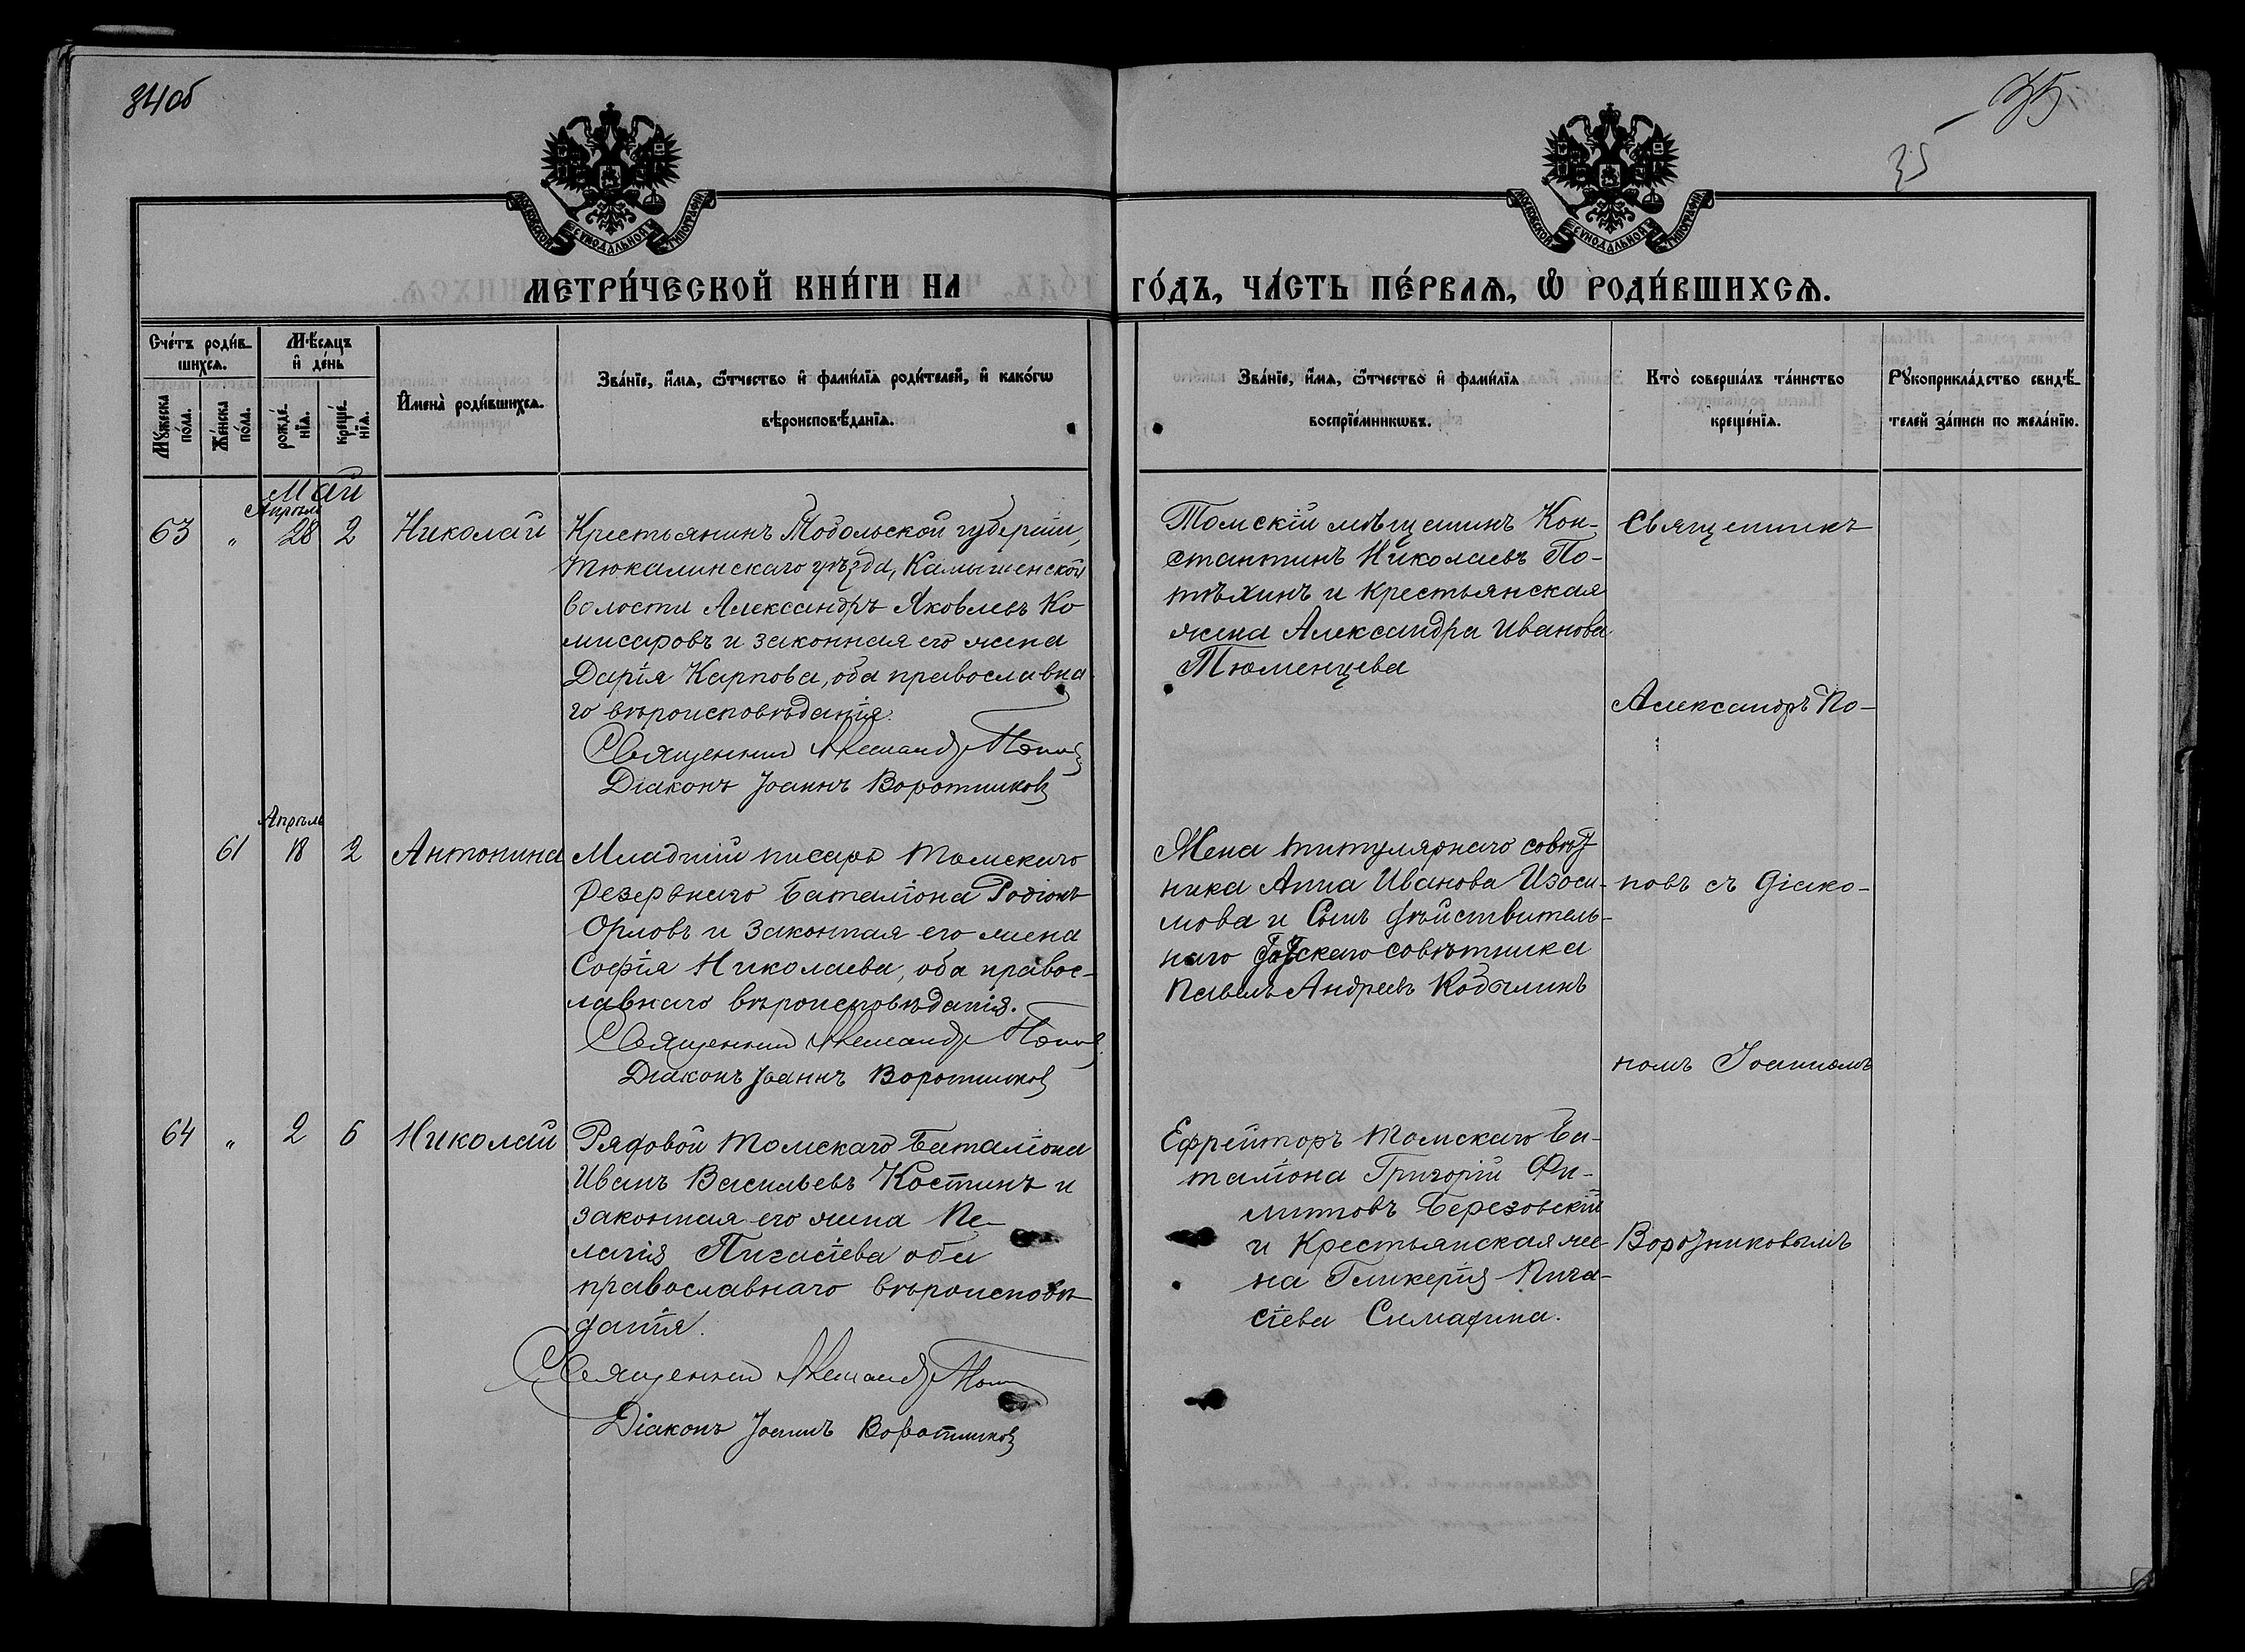 84об
35
35
МОСКОВСКОЙ СѴНОДАЛЬНОЙ ТИПОГРАФІИ
МОСКОВСКОЙ СѴНОДАЛЬНОЙ ТИПОГРАФІИ
МЕТРИ́ЧЕСКОЙ КНИ́ГИ НА
ГО́ДЪ, ЧА́СТЬ ПЕ́РВАѦ, Ѡ РОДИ́ВШИХСѦ.
Сче́тъ роди́в-
шихсѧ.
Мѣ́сѧцъ
и҆ де́нь
Мꙋ́жеска
по́ла.
Же́нска
по́ла.
рожде́-
нїѧ.
креще́-
нїѧ.
И҆мена̀ роди́вшихсѧ.
Зва́нїе, и҆́мѧ, ѻ҆́тчество и҆ фами́лїѧ роди́телей, и҆ како́гѡ
вѣроисповѣ́данїѧ.
Зва́нїе, и҆́мѧ, ѻ҆́тчество и҆ фами́лїѧ
воспрїе́мникѡвъ.
Кто̀ соверша́лъ та́инство
креще́нїѧ.
Рꙋкоприкла́дство свидѣ́-
телей за́писи по жела́нїю.
Май
Апрѣль
63 " 28 2 Николай
Крестьянинъ Тобольской губерніи,
Тюкалинскаго уѣзда, Камышенской
волости Александръ Яковлевъ Ко
мисаровъ и законная его жена
Дарія Карпова, оба православна
го вѣроисповѣданія.
Священникъ Александръ Поповъ
Діаконъ Іоаннъ Воротниковъ
Томскій мѣщанинъ Кон-
стантинъ Николаевъ По-
тѣхинъ и крестьянская
жена Александра Иванова
Тюменцева
Священникъ
Александръ По-
Апрѣль
61 18 2 Антонина
Младшій писарь Томскаго
резервнаго баталіона Родіонъ
Орловъ и законная его жена
Софія Николаева, оба правос-
лавнаго вѣроисповѣданія.
Священникъ Александръ Поповъ
Діаконъ Іоаннъ Воротниковъ
Жена титулярнаго совѣт
ника Анна Иванова Изоси-
мова и Сынъ дѣйствитель-
наго Статскаго совѣтника
Павелъ Андреевъ Кобылинъ
повъ съ діако-
номъ Іоанномъ
64 " 2 6 Николай
Рядовой Томскаго баталіона
Иванъ Васильевъ Костинъ и
законная его жена Пе-
лагія Пигасіева оба
православнаго вѣроисповѣ
данія.
Священникъ Александръ Поповъ
Діаконъ Іоаннъ Воротниковъ
Ефрейторъ Томскаго ба-
таліона Григорій
Березовскій
и Крестьянская же-
на Гликерія Пига-
сіева
Воротниковымъ